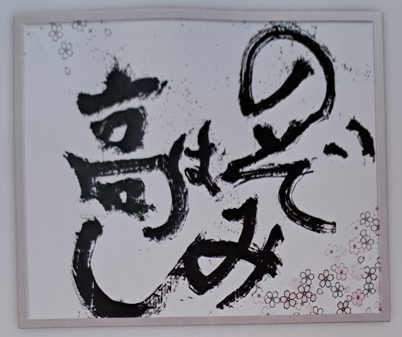 のぞみ
は
高し